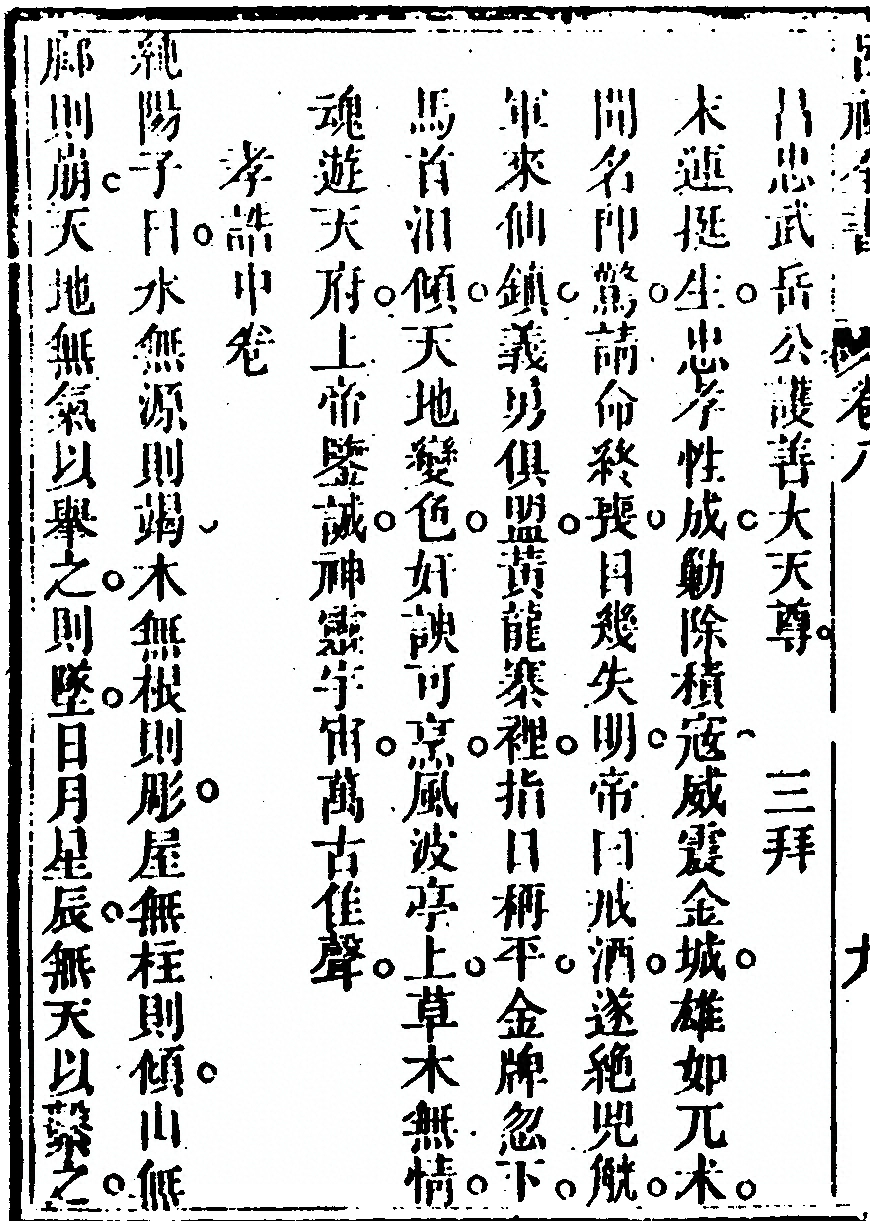 呂祖全書 卷八 九
昌忠武岳公護善大天尊。 三拜
木蓮挺生。忠孝性成。勦除積寇。威震金城。雄如兀术。
聞名即驚。請命終喪。目幾失明。帝曰戒酒。遂絕兕觥。
軍來仙鎮。義勇俱盟。黃龍寨裡。指日稱平。金牌忽下。
馬首泪傾。天地變色。奸諛可烹。風波亭上。草木無情。
魂遊天府。上帝鑒誠。神靈宇宙。萬古佳聲。
孝誥中卷
純陽子曰。水無源則竭。木無根則彫。屋無柱則傾。山無
腳則崩。天地無氣以舉之。則墜。日月星辰。無天以繫之。